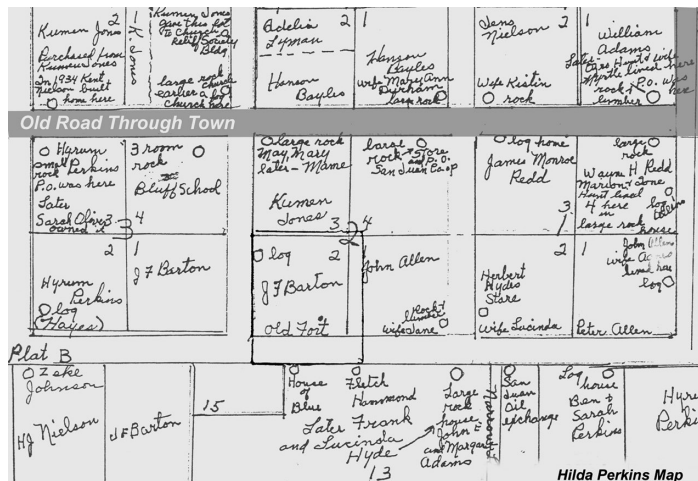 2
Kumen Jones
Purchased from
Kumen Jones
In 1934 Kent
Nielson built
home here
1
K. Jones
Kumen Jones
gave this lot
to Church &
Relief Society
Bldg.
large rock
church
earlier a log
church here
Adelia 2
Lyman
Hanson
Bayles
1
Hanson
Bayles
wife Mary Ann
Durham
large rock
Jens 2
Nielson
Wife Kistin
rock
1
William
Adams
Later
Myrtle lived here
rock & P.O. was
lumber here
Old Road Through Town
Hyrum
small Perkins
rock
P.O. was here
Later
Sarah Oliver 3
owned it
3 room
rock
Bluff School
4
3
large rock
May, Mary
later - Mame
Kumen
Jones
3
large
rock Store
and P.O.
San Juan Co-op
4
2
log home
James Monroe
Redd
3
large
rock
Wayne H Redd
Marion & Ione
Hunt lived
4 here
in
large rock
house
log
1
2
Hyrum
Perkins
log
(Hayes)
1
J F Barton
log 2
J F Barton
Old Fort
1
John Allen
Rock &
lumber
wife Jane
2
Herbert
Hydes
Store
Wife Lucinda
1
John Allen
wife Agnes
lived here
log
Peter Allen
Plat B
Zeke
Johnson
HJ Nielson
J F Barton
15
House
of
Blue
Fletch
Hammond
Later Frank
and Lucinda
Hyde
13
Large
rock
house
John E
and Margaret
Adams
San
Juan
Oil
exchange
Log
house
Ben &
Sarah
Perkins
Hyru
Perki
Hilda Perkins Map